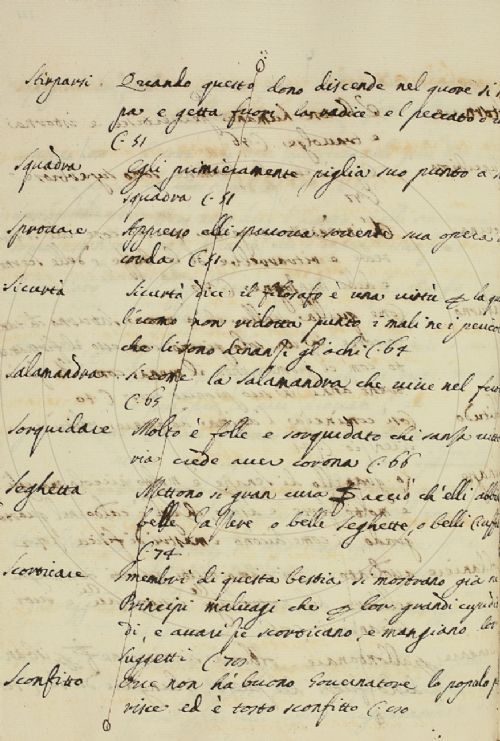 Stirparsi. Quando questo dono discende nel quore si
pa e getta fuori la radice e 'l peccato d'
C. 51
Squadra Egli primieramente piglia suo punto a
squadra C. 51
Sprovare Appresso elli spruova sovente sua opera
corda C. 51
Sicurtà Sicurtà dice il filosafo è una virtù p la
l'uomo non ridotta punto i mali ne i
che li sono dinansi gl'ochi C. 64
Salamandra Siccome la Salamandra che vive nel
C. 65
Sorquidare Molto è folle e sorquidato chi sansa
ria crede aver corona C. 66
Seghetta Mettono si gran cura p acciò ch'elli
belle o belle seghette, o belli
C. 74
Scorticare I membri di questa bestia si mostrano già
Principi malvagi che p lor grandi
di, e avari si scorticano, e mangiano lor
suggetti C.
Sconfitto Ove non hà buono Governatore lo popolo
risce ed è tosto sconfitto C.